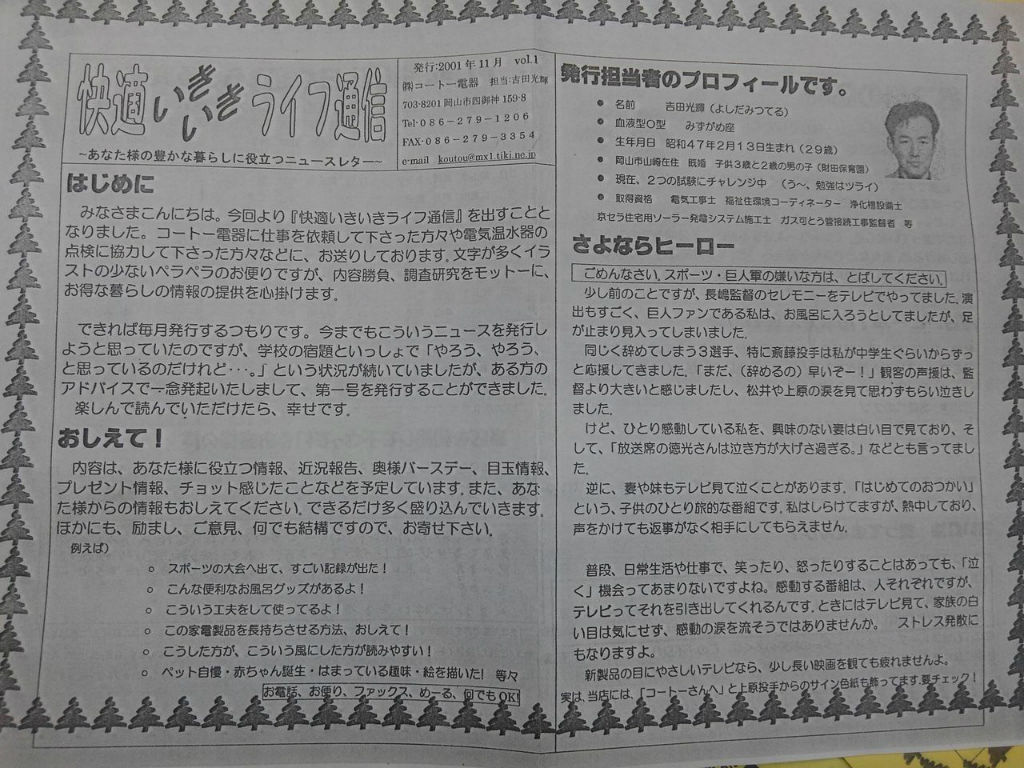 快適いきいきライフ通信
~あなた様の豊かな暮らしに役立つニュースレター~
発行:2001年11月 vol.1
㈱コートー電器 担当:吉田光輝
703-8201岡山市四御神159-8
Tel・086-279-1206
FAX・086-279-3354
e-mail koutou@mx1.tiki.ne.jp
はじめに
みなさまこんにちは。今回より『快適いきいきライフ通信』を出すことと
なりました。コートー電器に仕事を依頼して下さった方々や電気温水器の
点検に協力して下さった方々などに、お送りしております。文字が多くイラ
ストの少ないペラペラのお便りですが、内容勝負、調査研究をモットーに、
お得な暮らしの情報の提供を心掛けます。
できれば毎月発行するつもりです。今までもこういうニュースを発行し
ようと思っていたのですが、学校の宿題といっしょで「やろう、やろう、
と思っているのだけれど・・・。」という状況が続いていましたが、ある方の
アドバイスで一念発起いたしまして、第一号を発行することができました。
楽しんで読んでいただけたら、幸せです。
おしえて!
内容は、あなた様に役立つ情報、近況報告、奥様バースデー、目玉情報、
プレゼント情報、チョット感じたことなどを予定しています。また、あな
た様からの情報もおしえてください。できるだけ多く盛り込んでいきます。
ほかにも、励まし、ご意見、何でも結構ですので、お寄せ下さい。
例えば)
○ スポーツの大会へ出て、すごい記録が出た!
○ こんな便利なお風呂グッズがあるよ!
○ こういう工夫をして使ってるよ!
○ この家電製品を長持ちさせる方法、おしえて!
○ こうした方が、こういう風にした方が読みやすい!
○ ペット自慢・赤ちゃん誕生・はまっている趣味・絵を描いた! 等々
お電話、お便り、ファックス、めーる、何でもOK!
発行担当者のプロフィールです。
● 名前 吉田光輝(よしだみつてる)
● 血液型O型 みずがめ座
● 生年月日 昭和47年2月13日生まれ(29歳)
● 岡山市山崎在住 既婚 子供3歳と2歳の男の子(財田保育園)
● 現在、2つの試験にチャレンジ中 (う~、勉強はツライ)
● 取得資格 電気工事士 福祉住環境コーディネーター 浄化槽設備士
京セラ住宅用ソーラー発電システム施工士 ガス可とう管接続工事監督者 等
さよならヒーロー
ごめんなさい。スポーツ・巨人軍の嫌いな方は、とばしてください。
少し前のことですが、長嶋監督のセレモニーをテレビでやってました。演
出もすごく、巨人ファンである私は、お風呂に入ろうとしてましたが、足
が止まり見入ってしまいました。
同じく辞めてしまう3選手、特に斎藤投手は私が中学生ぐらいからずっ
と応援してきました。「まだ、(辞めるの)早いぞー!」観客の声援は、監
督より大きいと感じましたし、松井や上原の涙を見て思わずもらい泣きし
ました。
けど、ひとり感動している私を、興味のない妻は白い目で見ており、そ
して、「放送席の徳光さんは泣き方が大げさ過ぎる。」などとも言ってまし
た。
逆に、妻や妹もテレビ見て泣くことがあります。「はじめてのおつかい」
という、子供のひとり旅的な番組です。私はしらけてますが、熱中しており、
声をかけても返事がなく相手にしてもらえません。
普段、日常生活や仕事で、笑ったり、怒ったりすることはあっても、「泣
く」機会ってあまりないですよね。感動する番組は、人それぞれですが、
テレビってそれを引き出してくれるんです。ときにはテレビ見て、家族の白
い目は気にせず、感動の涙を流そうではありませんか。 ストレス発散に
もなりますよ。
新製品の目にやさしいテレビなら、少し長い映画を観ても疲れませんよ。
実は、当店には、「コートーさんへ」と上原投手からのサイン色紙も飾ってます。要チェック!